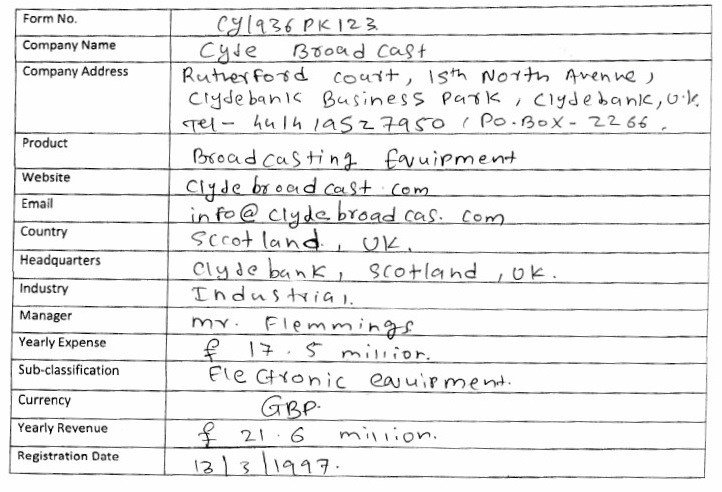 Form No. CY1936PK123
Company Name Cyde Broadcast
Company Address Rutherford court, 15th North Avenue,
Clydebank Business Park, Clydebank, U.K.
Tel- 44141 9527950, P.O.Box- 2266.
Product Broadcasting Equipment
Website Clydebroadcast.com
Email info@clydebroadcas.com
Country Sccotland, UK.
Headquarters Clydebank, Scotland, UK.
Industry Industrial.
Manager Mr. Flemmings
Yearly Expense £ 17.5 million.
Sub-classification Electronic equipment.
Currency GBP.
Yearly Revenue £ 21.6 million.
Registration Date 13/3/1997.